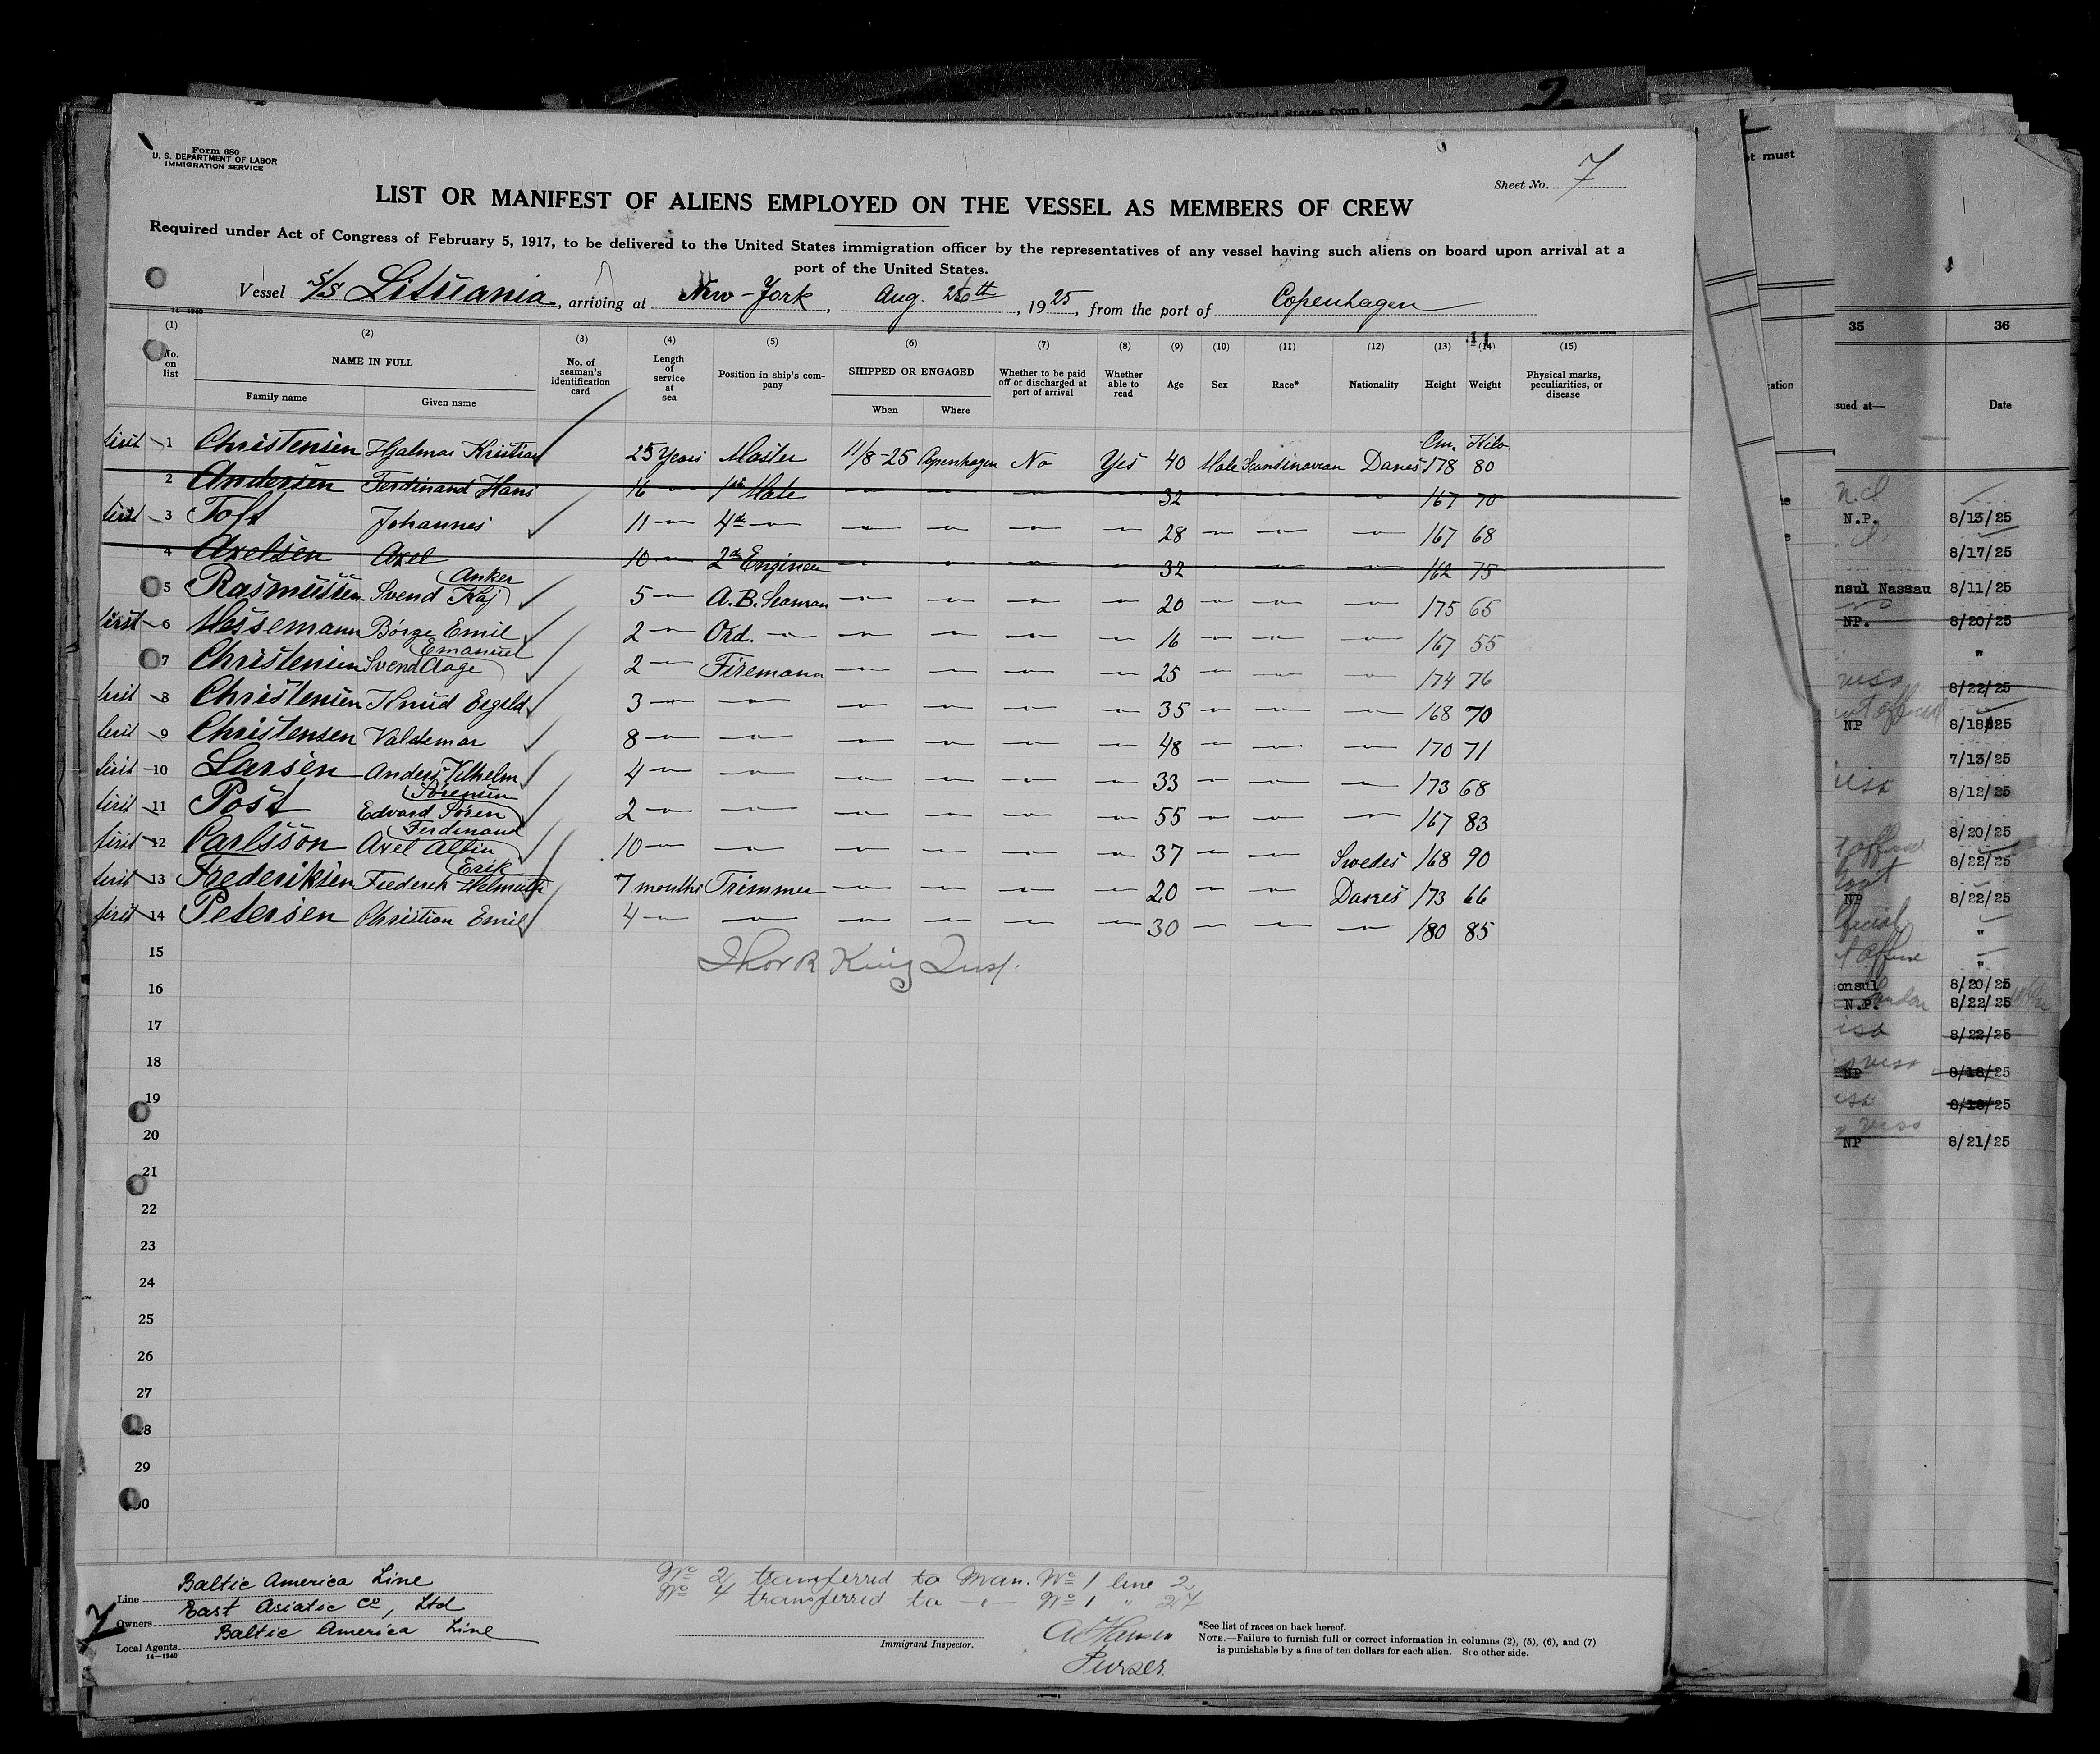 2.
Continental United States from a
Form 680
U. S. DEPARTMENT OF LABOR
IMMIGRATION SERVICE
Sheet No. 7
LIST OR MANIFEST OF ALIENS EMPLOYED ON THE VESSEL AS MEMBERS OF CREW
Required under Act of Congress of February 5, 1917, to be delivered to the United States immigration officer by the representatives of any vessel having such aliens on board upon arrival at a
port of the United States.
Vessel S/S Lituania, arriving at New-York, Aug. 26th, 1925, from the port of Copenhagen
14—1240
(1) (2) (3) (4) (5) (6) (7) (8) (9) (10) (11) (12) (13) (14) (15)
No. on list NAME IN FULL Family name Given name No. of seaman's identification card Length of service at sea Position in ship's company SHIPPED OR ENGAGED When Where Whether to be paid off or discharged at port of arrival Whether able to read Age Sex Race* Nationality Height Weight Physical marks, peculiarities, or disease
Cm. Kilo
1 Christensen Hjalmar Kristian 25 Years Master 11/8-25 Copenhagen No Yes 40 Male Scandinavian Danes 178 80
2 Andersen Ferdinand Hans 16 — 1st Mate — — — — 32 — — — 167 70
3 Toft Johannes 11 — 4th — — — — — 28 — — — 167 68
4 Axelsen Axel 10 — 2nd Engineer — — — — 32 — — — 162 75
5 Rasmussen Svend Kaj (Anker) 5 — A.B. Seaman — — — — 20 — — — 175 65
6 Mossemann Börge Emil 2 — Ord. — — — — — 16 — — — 167 55
7 Christensen Svend Aage (Emanuel) 2 — Firemann — — — — 25 — — — 174 76
8 Christensen Knud Egeld 3 — — — — — — 35 — — — 168 70
9 Christensen Valdemar 8 — — — — — — 48 — — — 170 71
10 Larsen Anders Vilhelm 4 — — — — — — 33 — — — 173 68
11 Post Edvard Sören (Sörensen) 2 — — — — — — 55 — — — 167 83
12 Carlsson Axel Albin (Ferdinand) 10 — — — — — — 37 — — Swedes 168 90
13 Frederiksen Frederik Helmuth (Erik) 7 months Trimmer — — — — 20 — — Danes 173 66
14 Petersen Christian Emil 4 — — — — — — 30 — — — 180 85
15
Thor R King Insp.
16
17
18
19
20
21
22
23
24
25
26
27
28
29
30
No 2 transferred to Man. No 1 line 2
No 4 transferred to — No 1 " 27
Line Baltic America Line
Owners East Asiatic Co, Ltd
Local Agents Baltic America Line
14—1240
Immigrant Inspector.
A Hansen
Purser.
*See list of races on back hereof.
NOTE.—Failure to furnish full or correct information in columns (2), (5), (6), and (7)
is punishable by a fine of ten dollars for each alien. See other side.
must
35 36
sued at— Date
N.P. 8/13/25
8/17/25
nsul Nassau 8/11/25
NP. 8/20/25
"
8/22/25
NP 8/18/25
7/13/25
8/12/25
8/20/25
8/22/25
NP 8/22/25
"
"
onsul 8/20/25
N.P. London 8/22/25
8/22/25
NP 8/18/25
8/18/25
NP 8/21/25